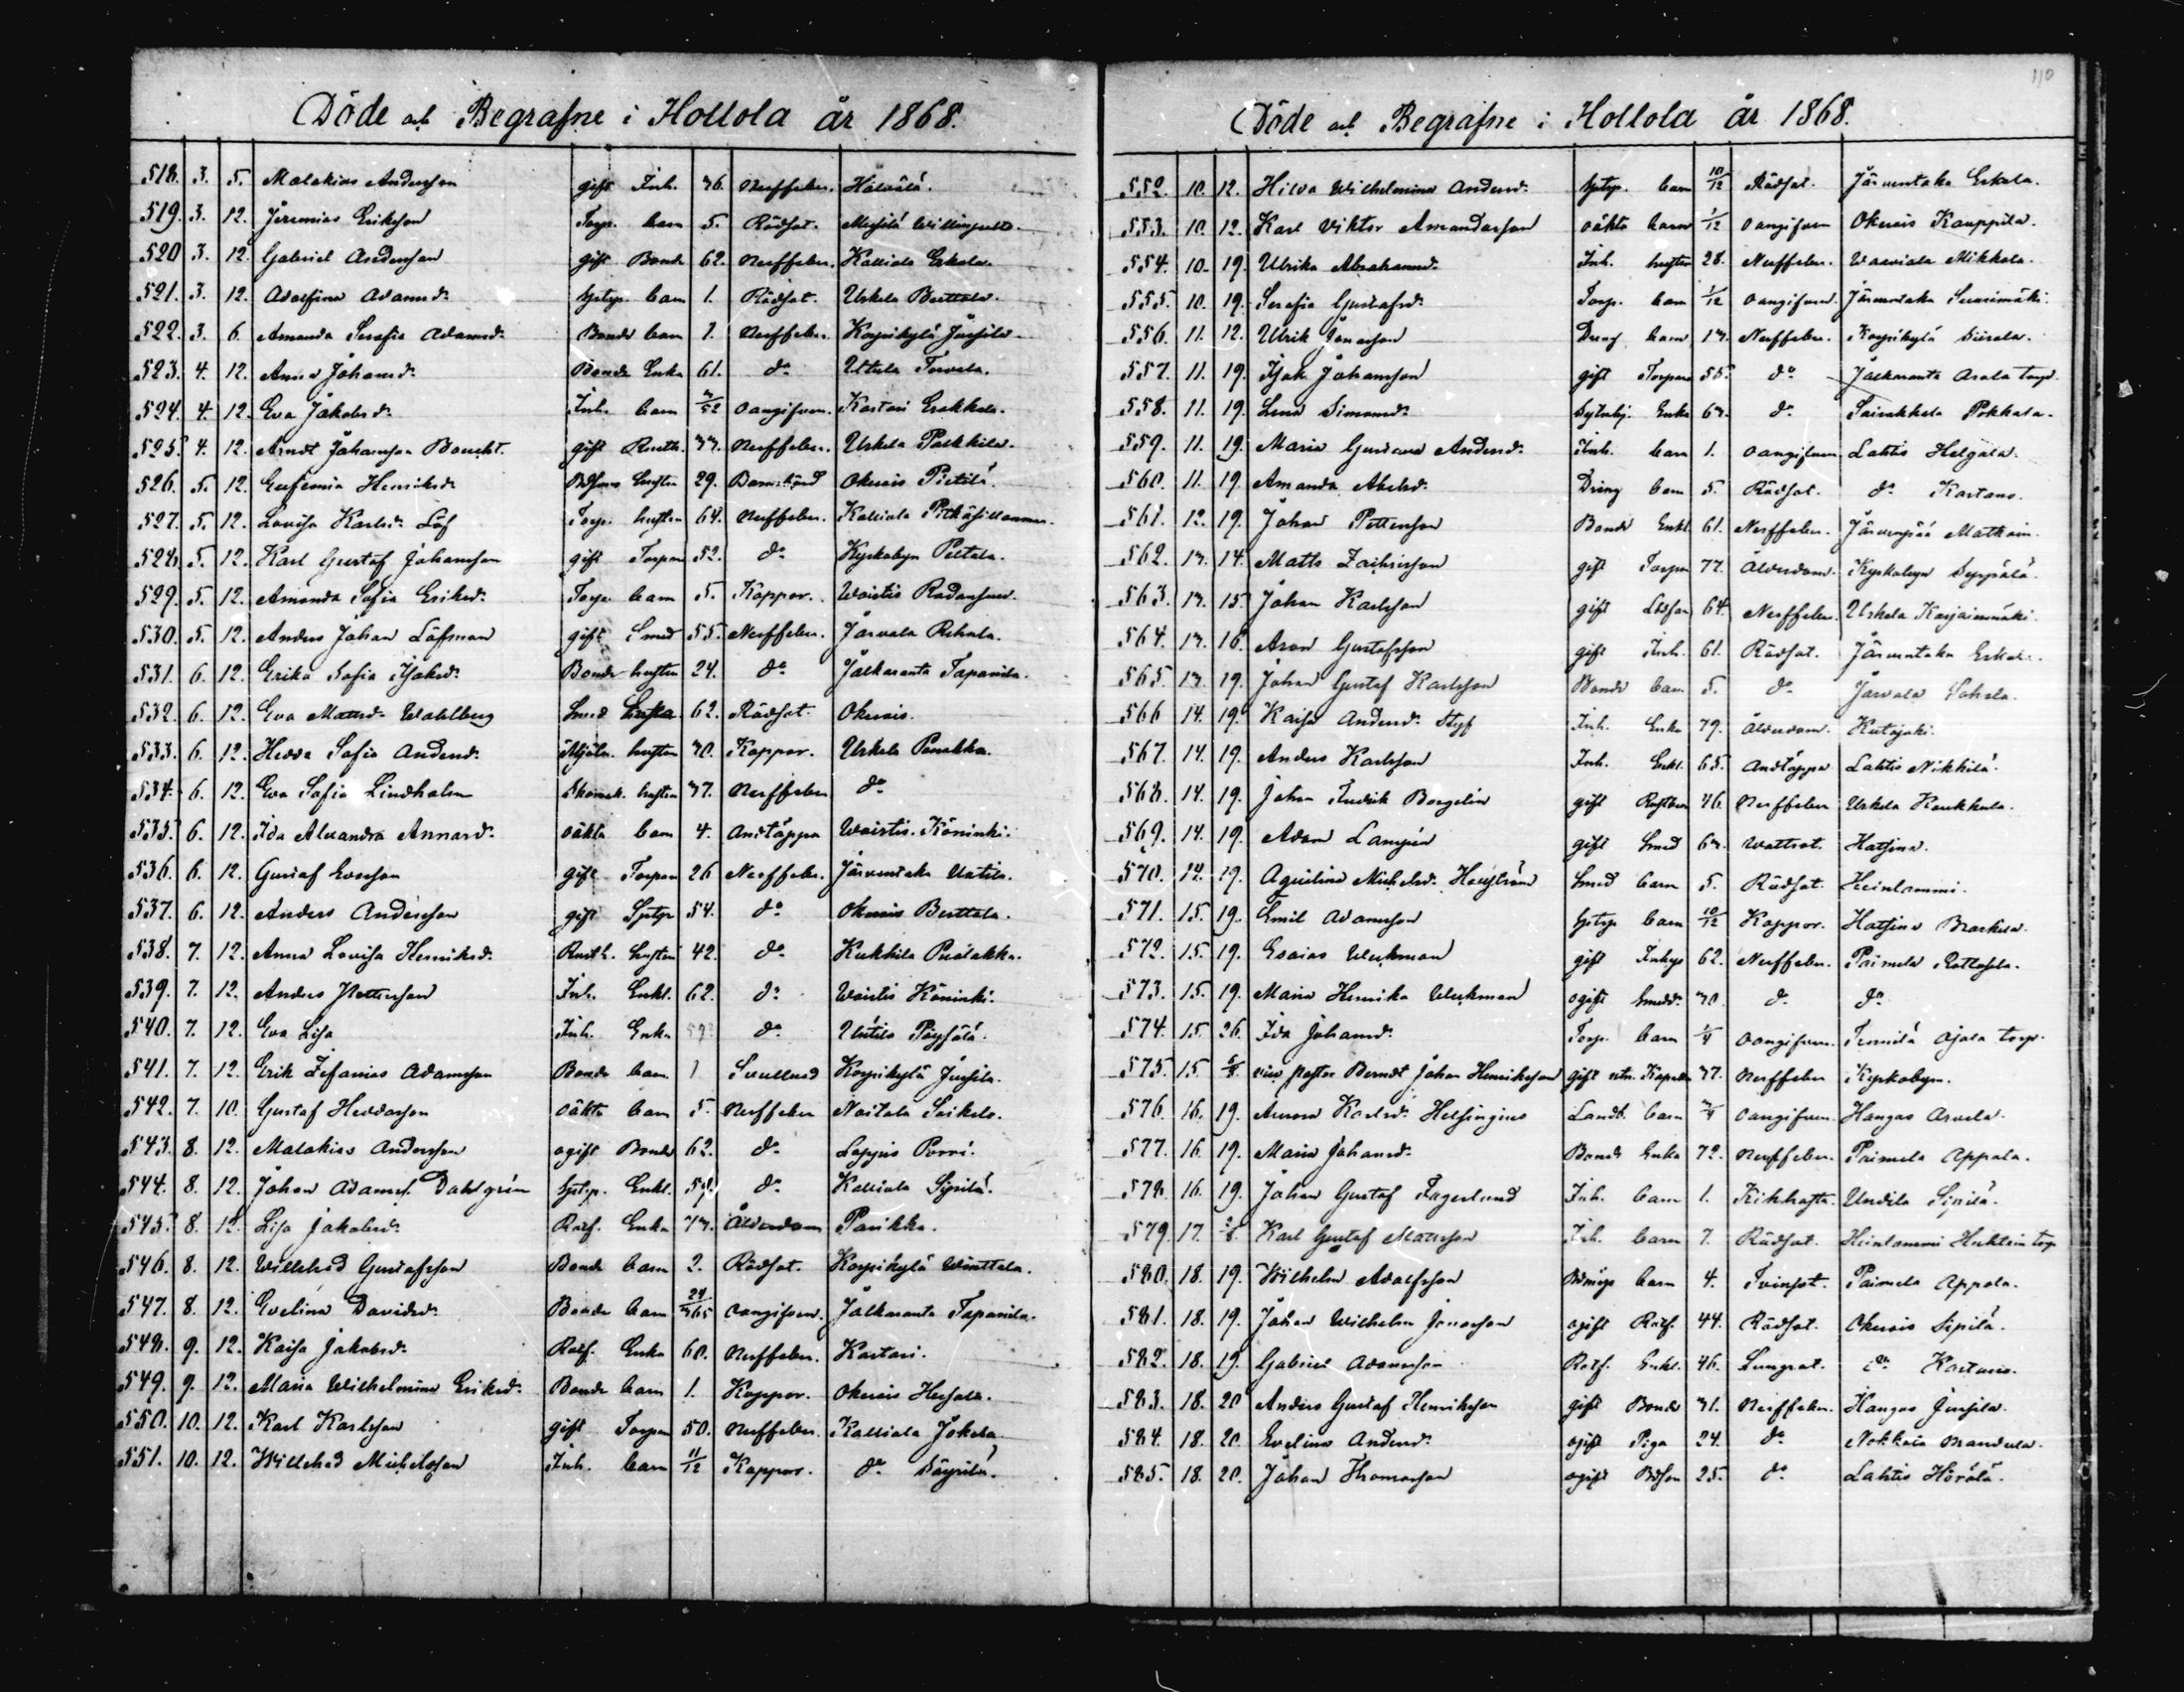 110
Döde och Begrafne i Hollola år 1868.
518. 3. 5. Malakias Andersson gift Inh. 36. Nerffeber. Hälvälä.
519. 3. 12. Jeremias Eriksson Torp. barn 5. Rödsot. Messilä
520 3. 12. Gabriel Andersson gift Bonde 62. Nerffeber. Kalliola Erkola.
521. 3. 12. Adolfina Adamsdr. Sptrp. barn 1. Rödsot. Uskila Berttala.
522. 3. 6 Amanda Serafia Adamsdr. Bonde barn 1. Nerffeber. Korpikylä Jussila.
523. 4. 12. Anna Johansdr. Bonde Enka 61. do Utula
524. 4. 12 Eva Jakobsdr. Inh. barn 3/52 oangifven. Kastari Erkkola.
525. 4. 12. Arndt Johansson gift Rusth. 33. Nerffeber. Uskila Parkkila.
526. 5. 12. Eufemia Henriksdr. hustru 29. Barnsbörd Okerois Pietilä.
527. 5. 12. Lovisa Karlsdr. Löf Torp. hustru 64. Nerffeber. Kalliola
528. 5. 12. Karl Gustaf Johansson gift Torpare 52. do Kyrkobyn Peltola.
529. 5. 12. Amanda Sofia Eriksdr. Torp. barn 5. Koppor. Waistis
530. 5. 12. Anders Johan Löfman gift Smed 55. Nerffeber. Jarvala Rehula.
531. 6. 12. Erika Sofia Isaksdr. Bonde hustru 24. do Jalkaranta Tapanila.
532. 6. 12. Eva Matsdr. Wahlberg Smed Enka 62. Rödsot. Okerois.
533. 6. 12. Hedda Sofia Andersdr. Mjöln. hustru 30. Koppor. Uskila
534. 6. 12. Eva Sofia Lindholm Skomak. hustru 37. Nerffeber do
535. 6. 12. Ida Alexandra Annasdr. oäkta barn 4. Andtäppa Waistis. Köninki.
536. 6. 12. Gustaf gift Torpare 26 Nerffeber. Järventaka Uotila.
537. 6. 12. Anders Andersson gift Sptrp 54. do Okerois Berttala.
538. 7. 12. Anna Lovisa Henriksdr. Rusth. hustru 42. do Kukkila
539. 7. 12. Anders Pettersson Inh. Enkl. 62. do Waistis Köninki.
540. 7. 12. Eva Lisa Inh. Enka do
541. 7. 12. Erik Zefanias Adamsson Bonde barn 1 Svullnad Korpikylä Jussila.
542. 7. 10. Gustaf Heddasson oäkta barn 5. Nerffeber Noitala Seikola.
543. 8. 12. Malakias Andersson ogift Bonde 62. do Porri.
544. 8. 12. Johan Adamss. Dahlgrén Sptrp. Enkl. 59. do Kalliola Sipilä.
545. 8. 12. Lisa Jakobsdr. Rotf. Enka 73. Ålderdom Panikka.
546. 8. 12. Willehad Gustafsson Bonde barn 2. Rödsot. Korpikylä
547. 8. 12. Evelina Davidsdr. Bonde barn 24/365 oangifven. Jalkaranta Tapanila.
548. 9. 12. Kaisa Jakobsdr. Rotf. Enka 60. Nerffeber. Kastari.
549. 9. 12. Maria Wilhelmina Eriksdr. Bonde barn 1. Koppor. Okerois Hersala.
550. 10. 12. Karl Karlsson gift Torpare 50. Nerffeber. Kalliola Jokela
551. 10. 12. Willehad Michelsson Inh. barn 11/12 Koppor. do
Döde och Begrafne i Hollola år 1868.
552. 10. 12. Hilda Wilhelmina Andersdr. Sptrp. barn 10/12 Rödsot. Järventaka Erkola.
553. 10. 12. Karl Viktor Amandasson oäkta barn 1/12 oangifven Okerois Kauppila.
554. 10. 19. Ulrika Abrahamsdr. Inh. hustru 28. Nerffeber. Mikkola.
555. 10. 19. Serafia Gustafsdr. Torp. barn 1/12 oangifven. Järventaka Suurimäki.
556. 11. 12. Ulrik Jonasson Dreng barn 13. Nerffeber. Korpikylä
557. 11. 19. Isak Johansson gift Torpare 55. do Jalkaranta Arola torp.
558. 11. 19. Lena Simonsdr. Enka 63. do Sairakkala Pokkala.
559. 11. 19. Maria Gustava Andersdr. Inh. barn 1. oangifven Lahtis
560. 11. 19 Amanda Abelsdr. Dreng barn 5. Rödsot. do Kartano.
561. 12. 19. Johan Pettersson Bonde Enkl. 61. Nerffeber. Järvenpää
562. 13. 14. Matts gift Torpare 77. Ålderdom. Kyrkobyn Seppälä.
563. 13. 15. Johan Karlsson gift 64. Nerffeber. Uskila
564. 13. 16. Aron Gustafsson gift Inh. 61. Rödsot. Järventaka
565. 13. 19. Johan Gustaf Karlsson Bonde barn 5. do Jarvala
566 14. 19. Kaisa Andersdr. Styf Inh. Enka 79. Ålderdom. Kutajoki.
567. 14. 19. Anders Karlsson Inh. Enkl. 65. Andtäppa Lahtis Nikkilä.
568. 14. 19. Johan Fredrik Borgelin gift 46. Nerffeber Uskila Kaukkala.
569. 14. 19. Adam Lampén gift Smed 63. Wattsot. Hatsina.
570. 14. 19. Aqvilina Michelsdr. Smed barn 5. Rödsot. Heinlammi.
571. 15. 19. Emil Adamsson Sptrp. barn 10/12 Koppor. Hatsina
572. 15. 19. Esaias gift 62. Nerffeber. Paimela
573. 15. 19. Maria Henrika ogift 30. do do
574. 15. 26. Ida Johansdr. Torp. barn oangifven. Ajola torp.
575. 15. vice pastor Berndt Johan Henriksson gift 37. Nerffeber Kyrkobyn.
576. 16. 19. Aurora Karlsdr. Helsingius Landb. barn 3/4 oangifven. Hangas Arvela.
577. 16. 19. Maria Johansdr. Bonde Enka 72. Nerffeber. Paimela Appala.
578. 16. 19. Johan Gustaf Fagerlund Inh. barn 1. Kikhosta. Sipilä.
579. 17. Karl Gustaf Matsson Inh. barn 7. Rödsot. Heinlammi torp
580. 18. 19. Wilhelm Adolfsson barn 4. Tvinsot. Paimela Appala.
581. 18. 19. Johan Wilhelm Jonasson ogift Rotf. 44. Rödsot. Okerois Sipilä.
582. 18. 19. Gabriel Adamsson Rotf. Enkl. 46. Lungsot. do Kartano.
583. 18. 20 Anders Gustaf Henriksson gift Bonde 31. Nerffeber. Hangas Jussila.
584. 18. 20. Evelina Andersdr. ogift Piga 24. do Nokkola
585. 18. 20. Johan Thomasson ogift 25. do Lahtis Hörölä.